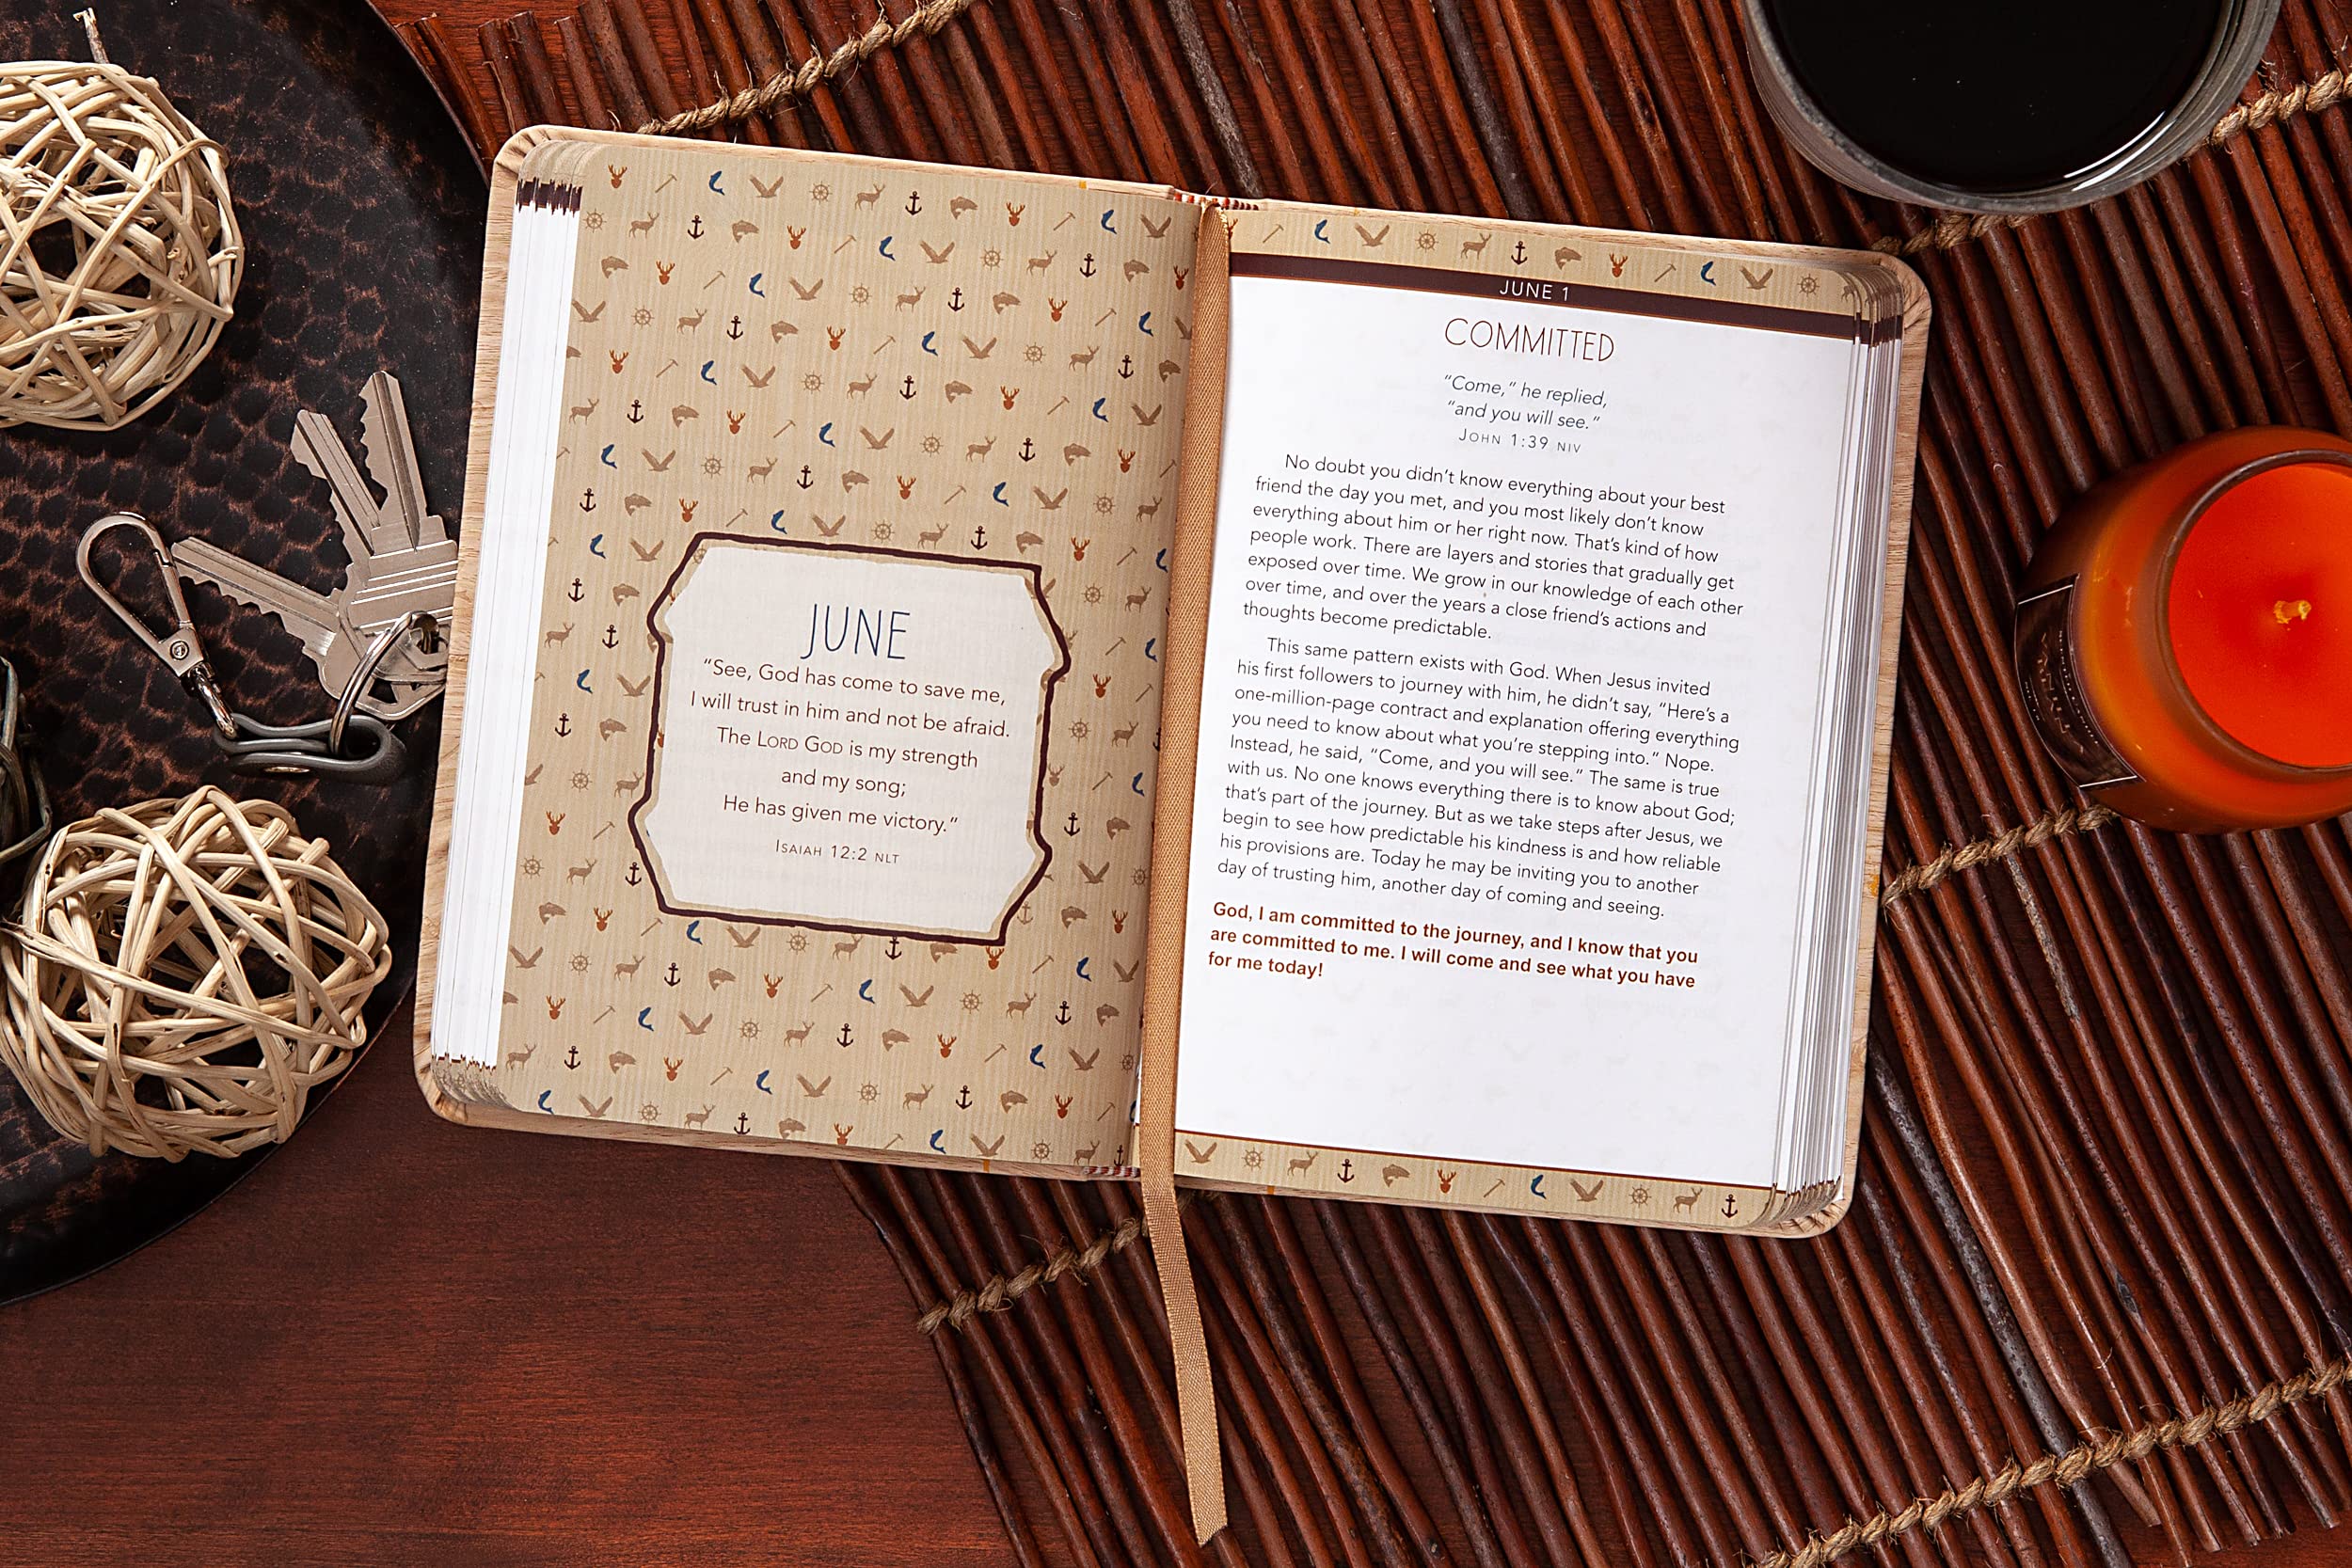 JUNE
“See, God has come to save me,
I will trust in him and not be afraid.
The LORD GOD is my strength
and my song;
He has given me victory.”
ISAIAH 12:2 NLT
JUNE 1
COMMITTED
“Come,” he replied,
“and you will see.”
JOHN 1:39 NIV
No doubt you didn’t know everything about your best
friend the day you met, and you most likely don’t know
everything about him or her right now. That’s kind of how
people work. There are layers and stories that gradually get
exposed over time. We grow in our knowledge of each other
over time, and over the years a close friend’s actions and
thoughts become predictable.
This same pattern exists with God. When Jesus invited
his first followers to journey with him, he didn’t say, “Here’s a
one-million-page contract and explanation offering everything
you need to know about what you’re stepping into.” Nope.
Instead, he said, “Come, and you will see.” The same is true
with us. No one knows everything there is to know about God;
that’s part of the journey. But as we take steps after Jesus, we
begin to see how predictable his kindness is and how reliable
his provisions are. Today he may be inviting you to another
day of trusting him, another day of coming and seeing.
God, I am committed to the journey, and I know that you
are committed to me. I will come and see what you have
for me today!